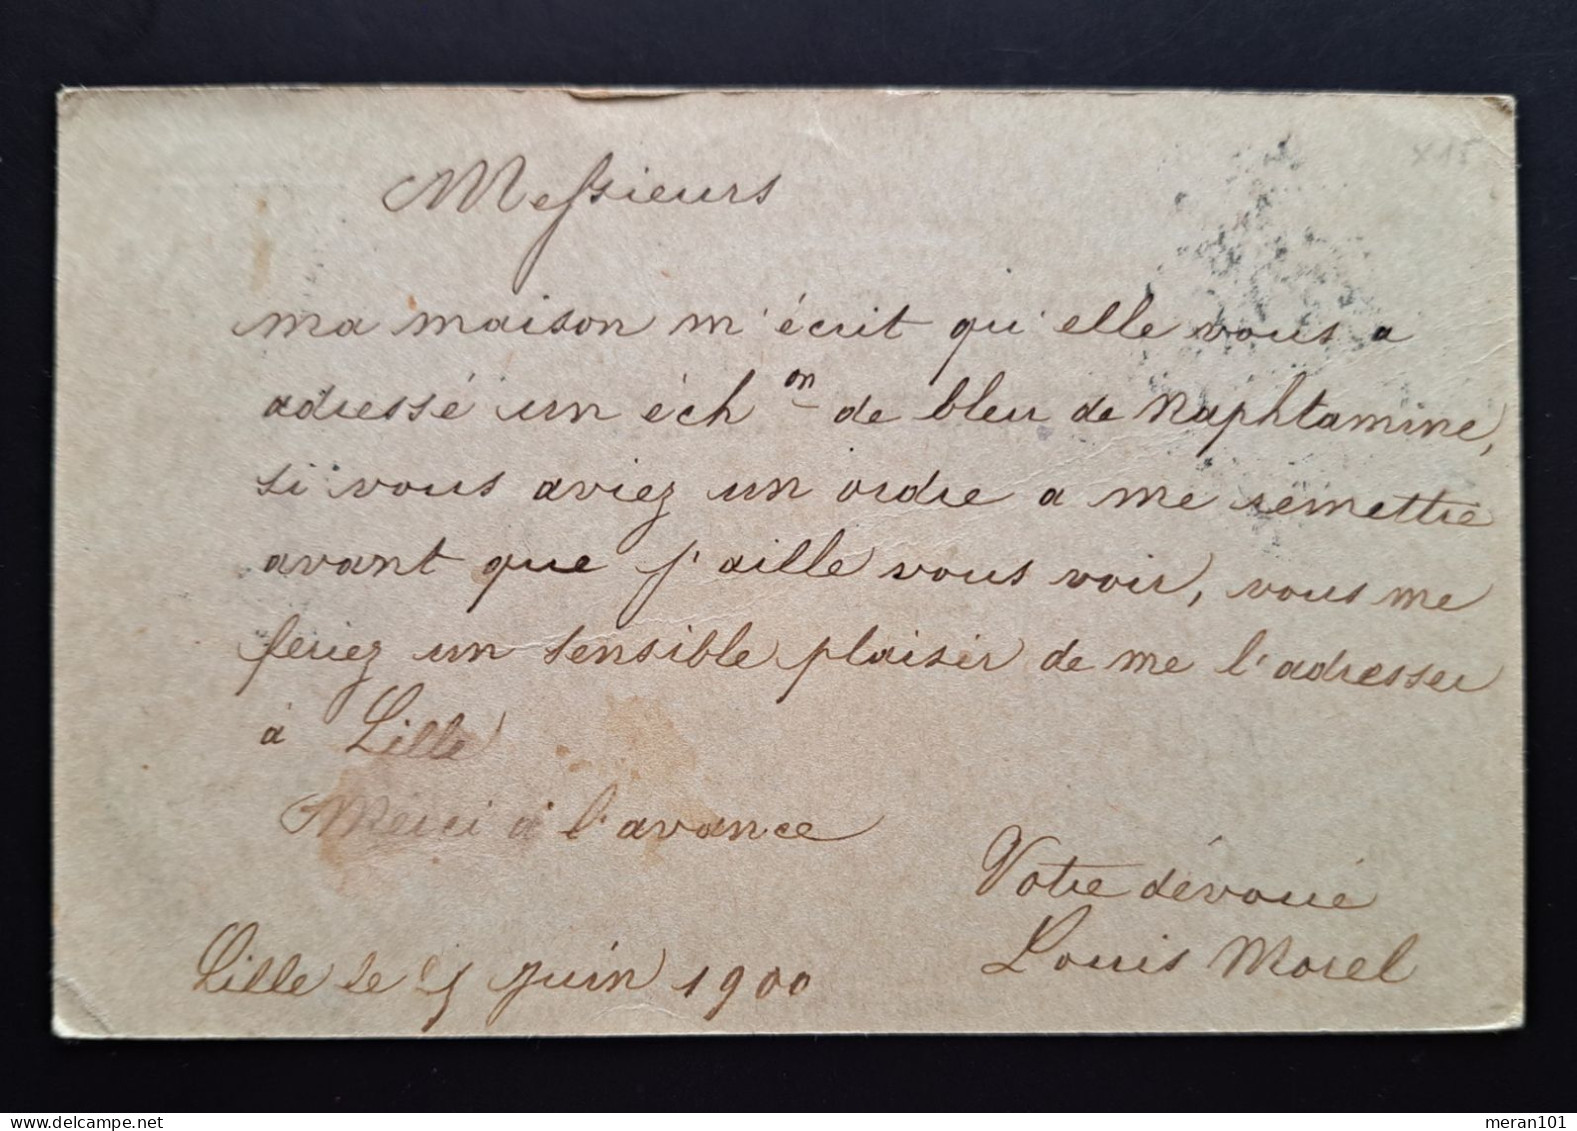 Messieurs
ma maison m'écrit qu'elle vous a
adressé un éch on de bleu de Naphtamine,
si vous aviez un ordre a me remettre
avant que j'aille vous voir, vous me
feriez un sensible plaisir de me l'adresser
à Lille
Merci à l'avance
Votre dévoué
Louis Morel
Lille le 5 juin 1900
meran101